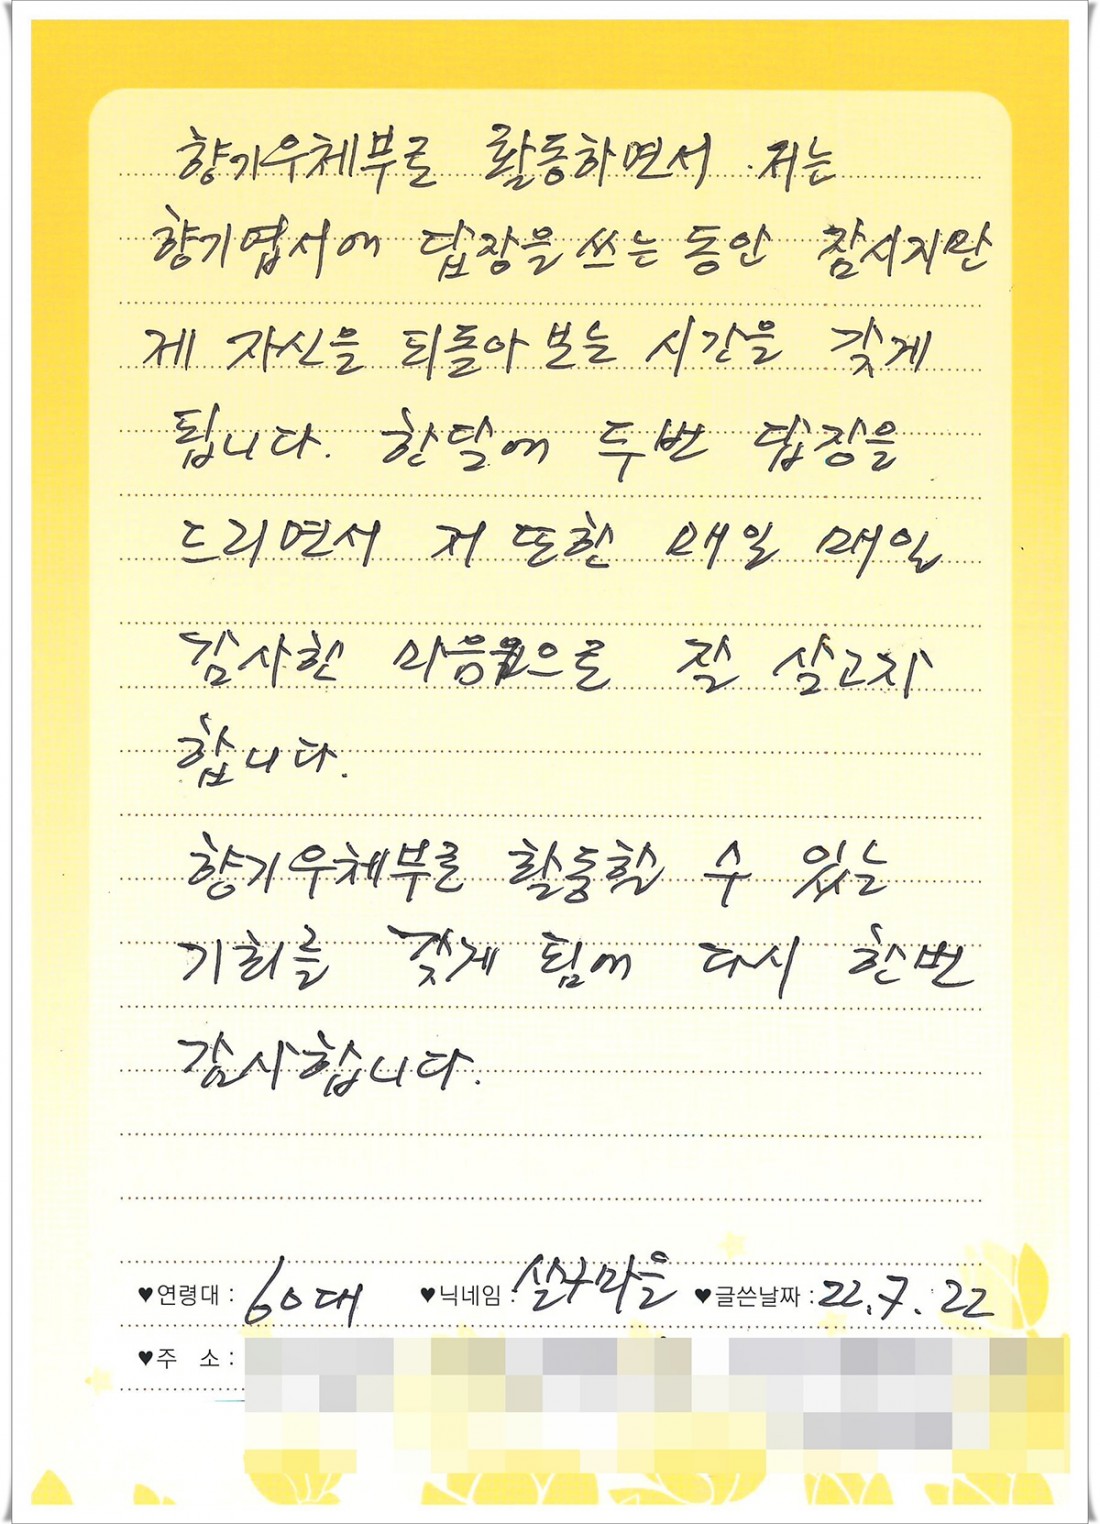 향기우체부로 활동하면서 저는
향기엽서에 답장을 쓰는 동안 잠시지만
제 자신을 되돌아 보는 시간을 갖게
됩니다. 한달에 두번 답장을
드리면서 저 또한 매일 매일
감사한 마음으로 잘 살고자
합니다.
향기우체부로 활동할 수 있는
기회를 갖게 됨에 다시 한번
감사합니다.
♥연령대 : 60대 ♥닉네임 : 살구마을 ♥글쓴날짜 : 22.7.22
♥주 소 :